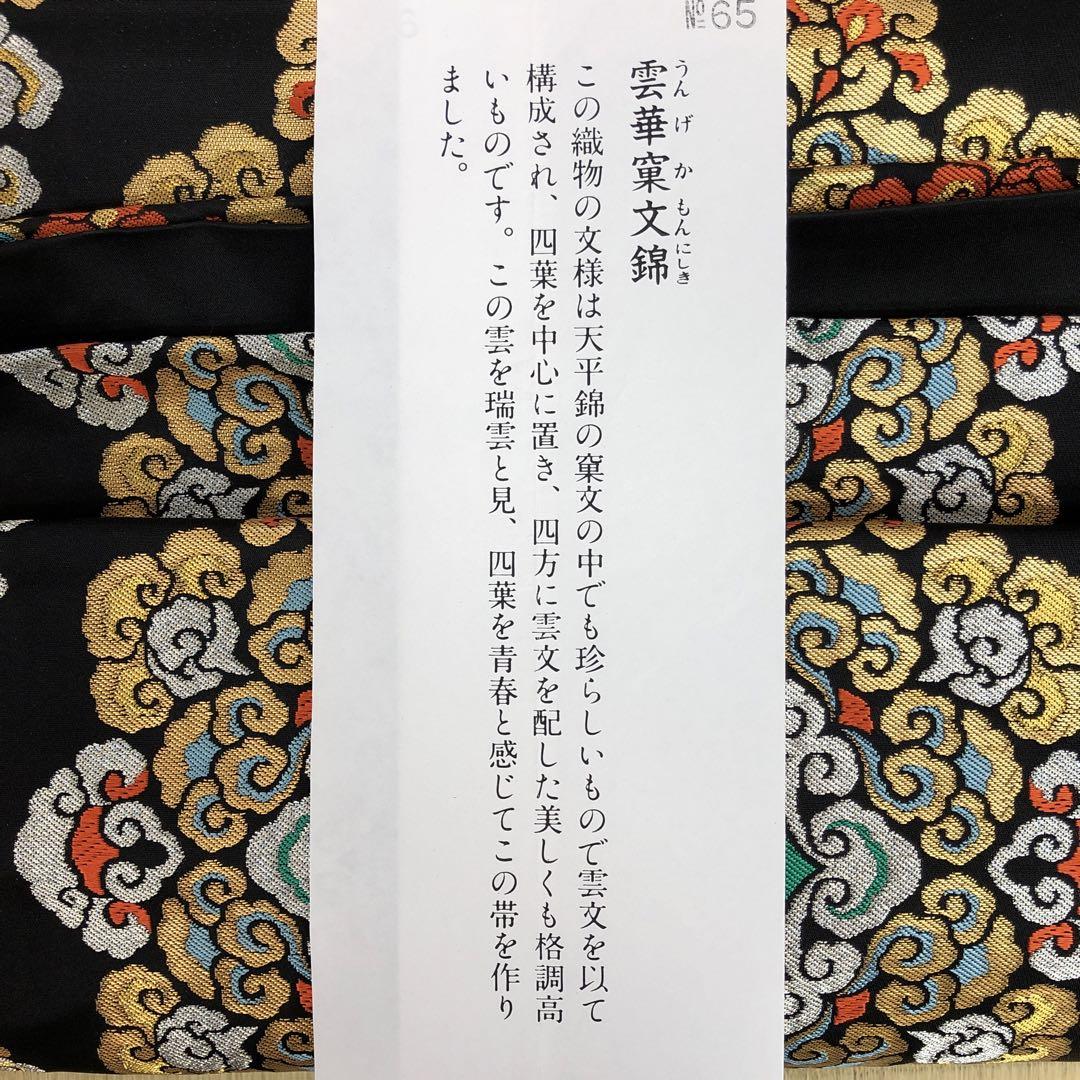 №65
雲華窠文錦
うんげかもんにしき
この織物の文様は天平錦の窠文の中でも珍らしいもので雲文を以て
構成され、四葉を中心に置き、四方に雲文を配した美しくも格調高
いものです。この雲を瑞雲と見、四葉を青春と感じてこの帯を作り
ました。